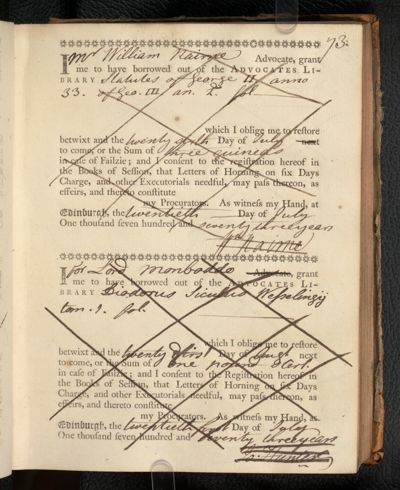 73.
I Mr William Nairne Advocate, grant
me to have borrowed out of the ADVOCATES LI-
BRARY Statutes of George II anno
33. of Geo. III an. 2. fol
which I oblige me to restore
betwixt and the twenty sixth Day of July next
to come, or the Sum of three guineas
in case of Failzie; and I consent to the registration hereof in
the Books of Session, that Letters of Horning on six Days
Charge, and other Executorials needful, may pass thereon, as
effeirs, and thereto constitute
my Procurators. As witness my Hand, at
Edinburgh, the twentieth Day of July
One thousand seven hundred and seventy three years
W Nairne
I For Lord Monboddo Advocate, grant
me to have borrowed out of the ADVOCATES LI-
BRARY Diodorus Siculus Wesselingij
tom. 1. fol.
which I oblige me to restore
betwixt and the twenty first Day of next
to come, or the Sum of one pound Sterl
in case of Failzie; and I consent to the Registration hereof in
the Books of Session, that Letters of Horning on six Days
Charge, and other Executorials needful, may pass thereon, as
effeirs, and thereto constitute
my Procurators. As witness my Hand, at
Edinburgh, the twentieth Day of July
One thousand seven hundred and seventy three years